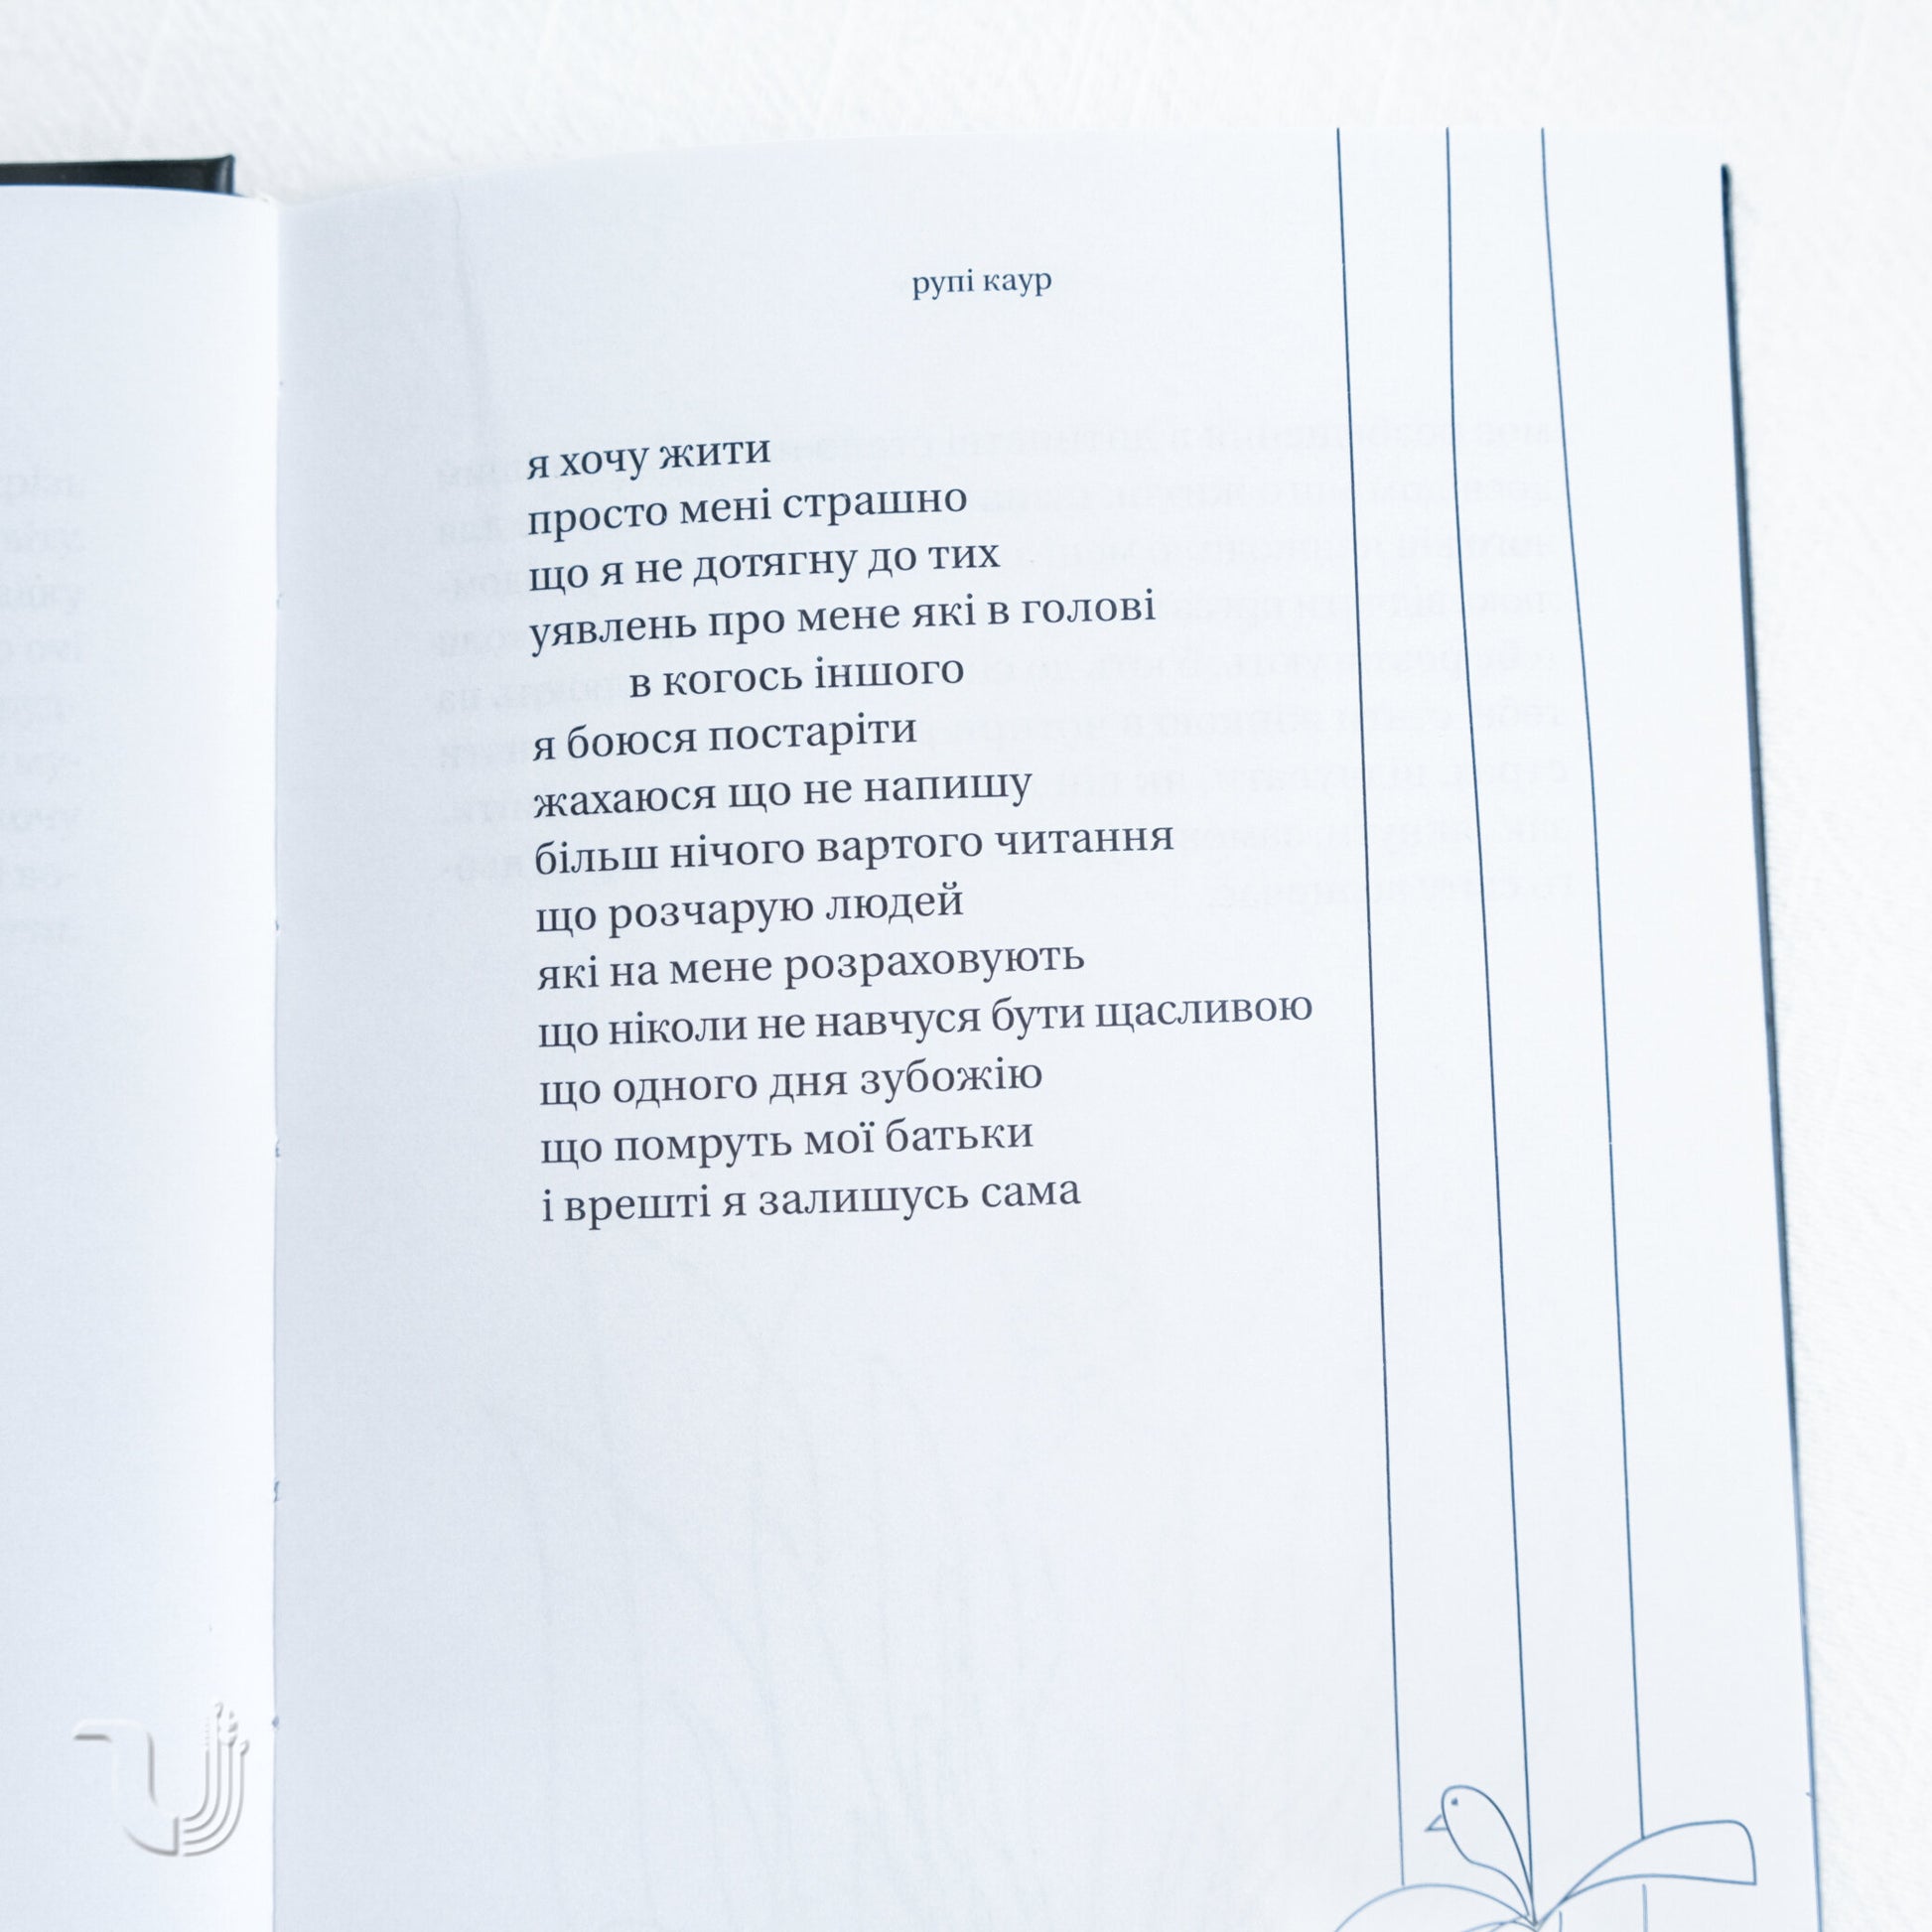 рупі каур
я хочу жити
просто мені страшно
що я не дотягну до тих
уявлень про мене які в голові
в когось іншого
я боюся постаріти
жахаюся що не напишу
більш нічого вартого читання
що розчарую людей
які на мене розраховують
що ніколи не навчуся бути щасливою
що одного дня зубожію
що помруть мої батьки
і врешті я залишусь сама